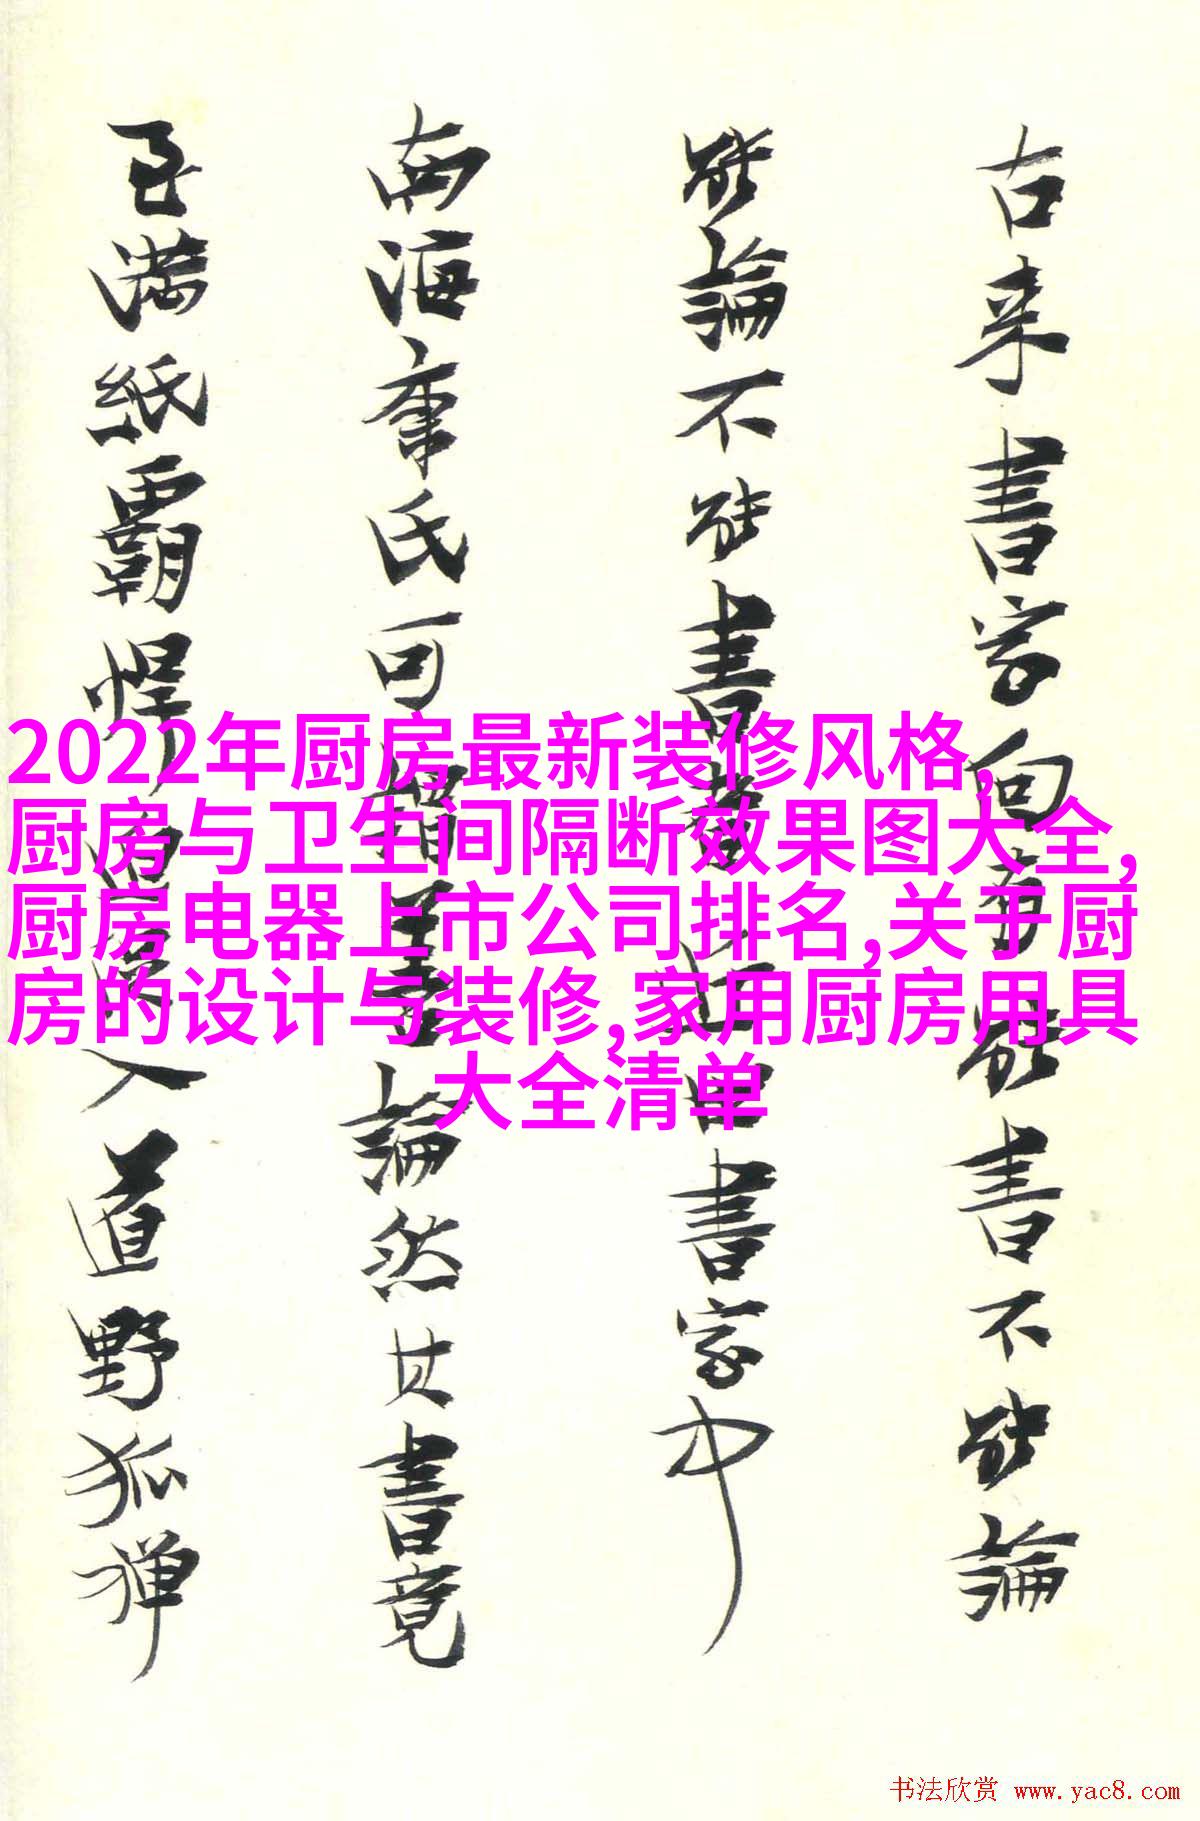 古来書家向有能書不能論
能論不能書者書家中
南海康氏可謂論然其書竟
至满紙霸悍入道野狐禅
2022年厨房最新装修风格,
厨房与卫生间隔断效果图大全,
厨房电器上市公司排名,关于厨
房的设计与装修,家用厨房用具
大全清单
书法欣赏 www.yac8.com